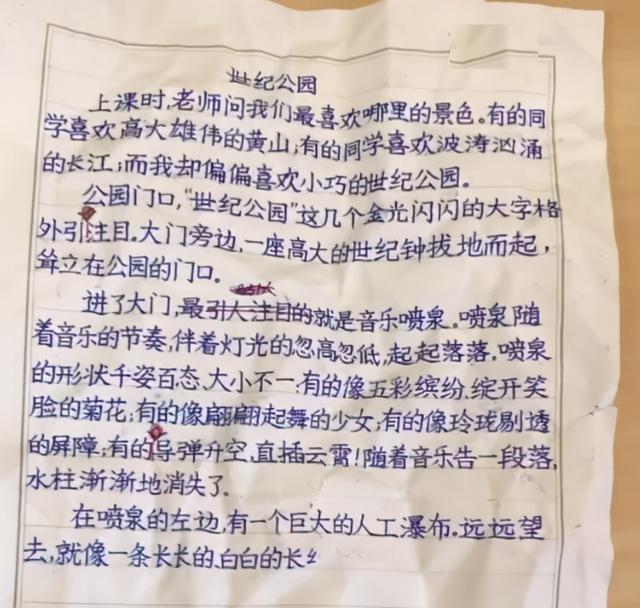 世纪公园
上课时,老师问我们最喜欢哪里的景色。有的同
学喜欢高大雄伟的黄山;有的同学喜欢波涛汹涌
的长江;而我却偏偏喜欢小巧的世纪公园。
公园门口,“世纪公园”这几个金光闪闪的大字格
外引注目.大门旁边,一座高大的世纪钟拔地而起,
耸立在公园的门口。
进了大门,最引人注目的就是音乐喷泉。喷泉随
着音乐的节奏,伴着灯光的忽高忽低,起起落落.喷泉
的形状千姿百态、大小不一.有的像五彩缤纷、绽开笑
脸的菊花;有的像翩翩起舞的少女;有的像玲珑剔透
的屏障;有的导弹升空,直插云霄!随着音乐告一段落,
水柱渐渐地消失了.
在喷泉的左边,有一个巨大的人工瀑布.远远望
去,就像一条长长的、白白的长